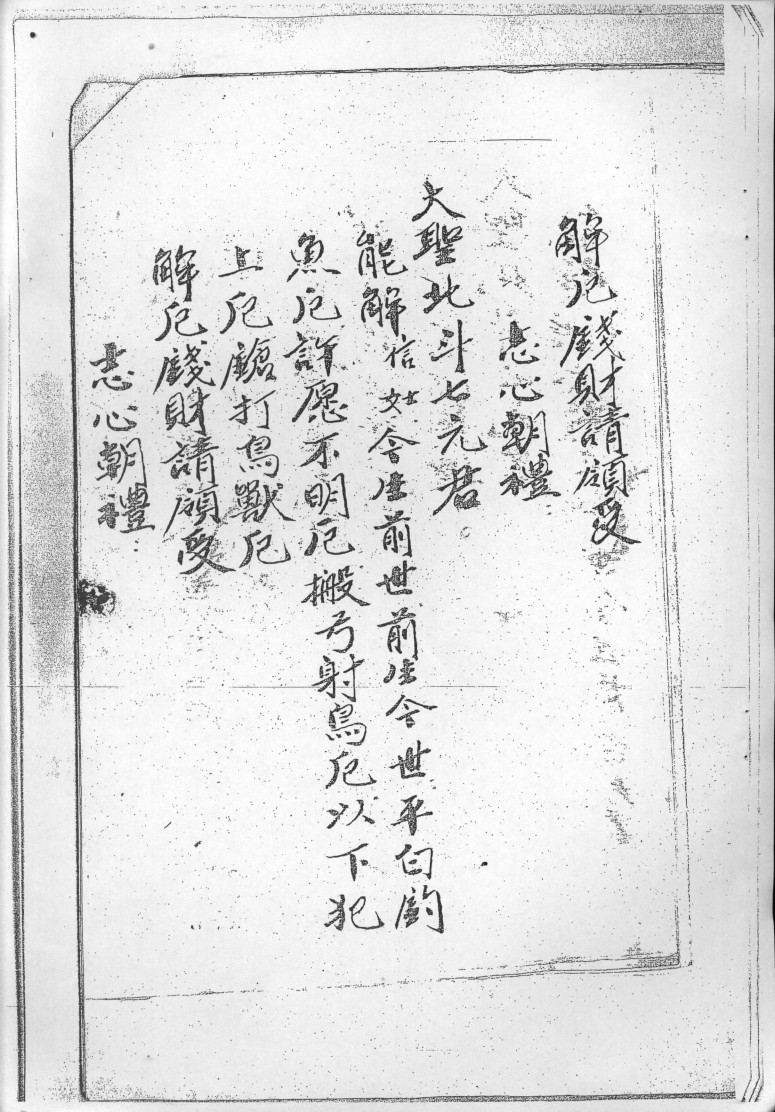 解厄錢財請領受
志心朝禮
大聖北斗七元君
能解信女士今生前世前生今世平白釣
魚厄許愿不明厄搬弓射鳥厄以下犯
上厄鎗打鳥獸厄
解厄錢財請領受
志心朝禮